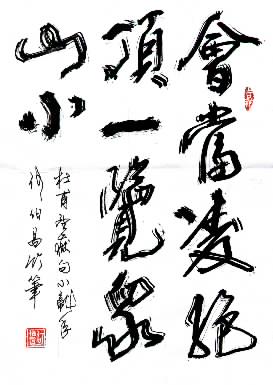 會當凌絕
頂一覽眾
山小
杜甫望嶽句小詩